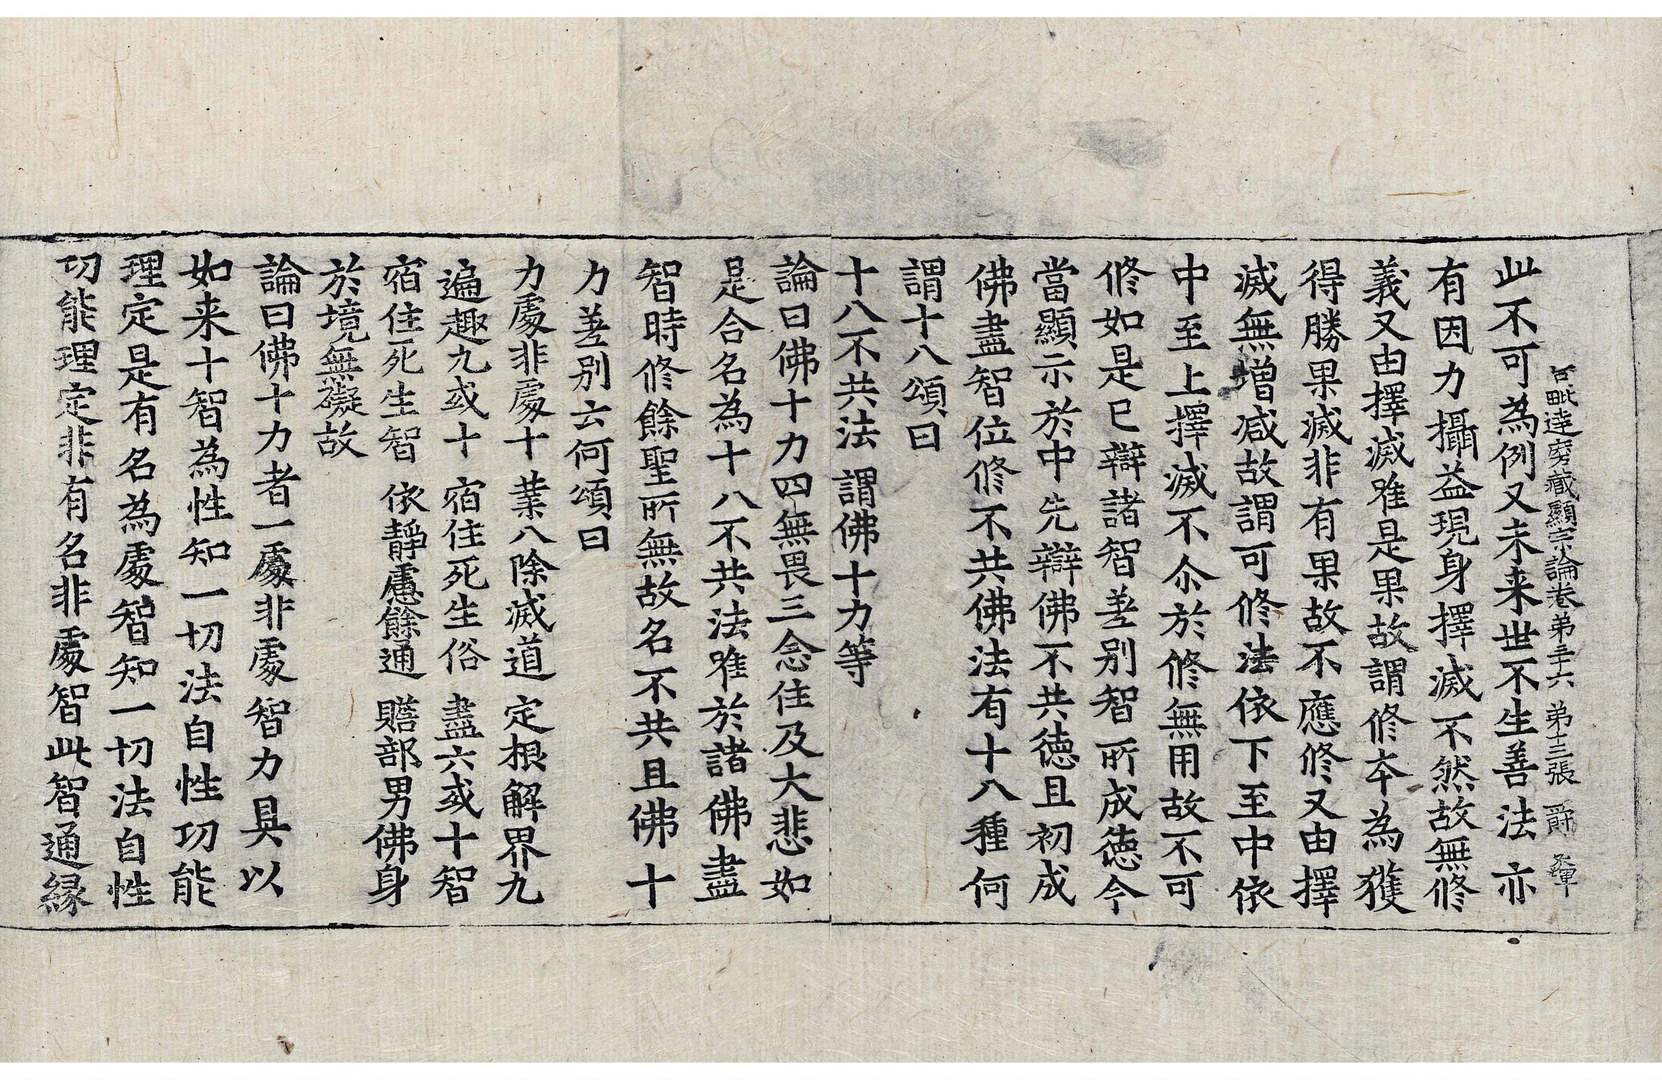 毗達磨藏顯宗論卷弟三十六 弟十三張 爵
此不可為例又未来世不生善法亦
有因力攝益現身擇滅不然故無修
義又由擇滅唯是果故謂修本為獲
得勝果滅非有果故不應修又由擇
滅無增减故謂可修法依下至中依
中至上擇滅不尒於修無用故不可
修如是已辯諸智差別智所成德今
當顯示於中先辯佛不共德且初成
佛盡智位修不共佛法有十八種何
謂十八頌曰
十八不共法 謂佛十力等
論曰佛十力四無畏三念住及大悲如
是合名為十八不共法唯於諸佛盡
智時修餘聖所無故名不共且佛十
力差別云何頌曰
力處非處十 業八除滅道 定根解界九
遍趣九或十 宿住死生俗 盡六或十智
宿住死生智 依靜慮餘通 贍部男佛身
於境無礙故
論曰佛十力者一處非處智力具以
如来十智為性知一切法自性功能
理定是有名為處智知一切法自性
功能理定非有名非處智此智通緣